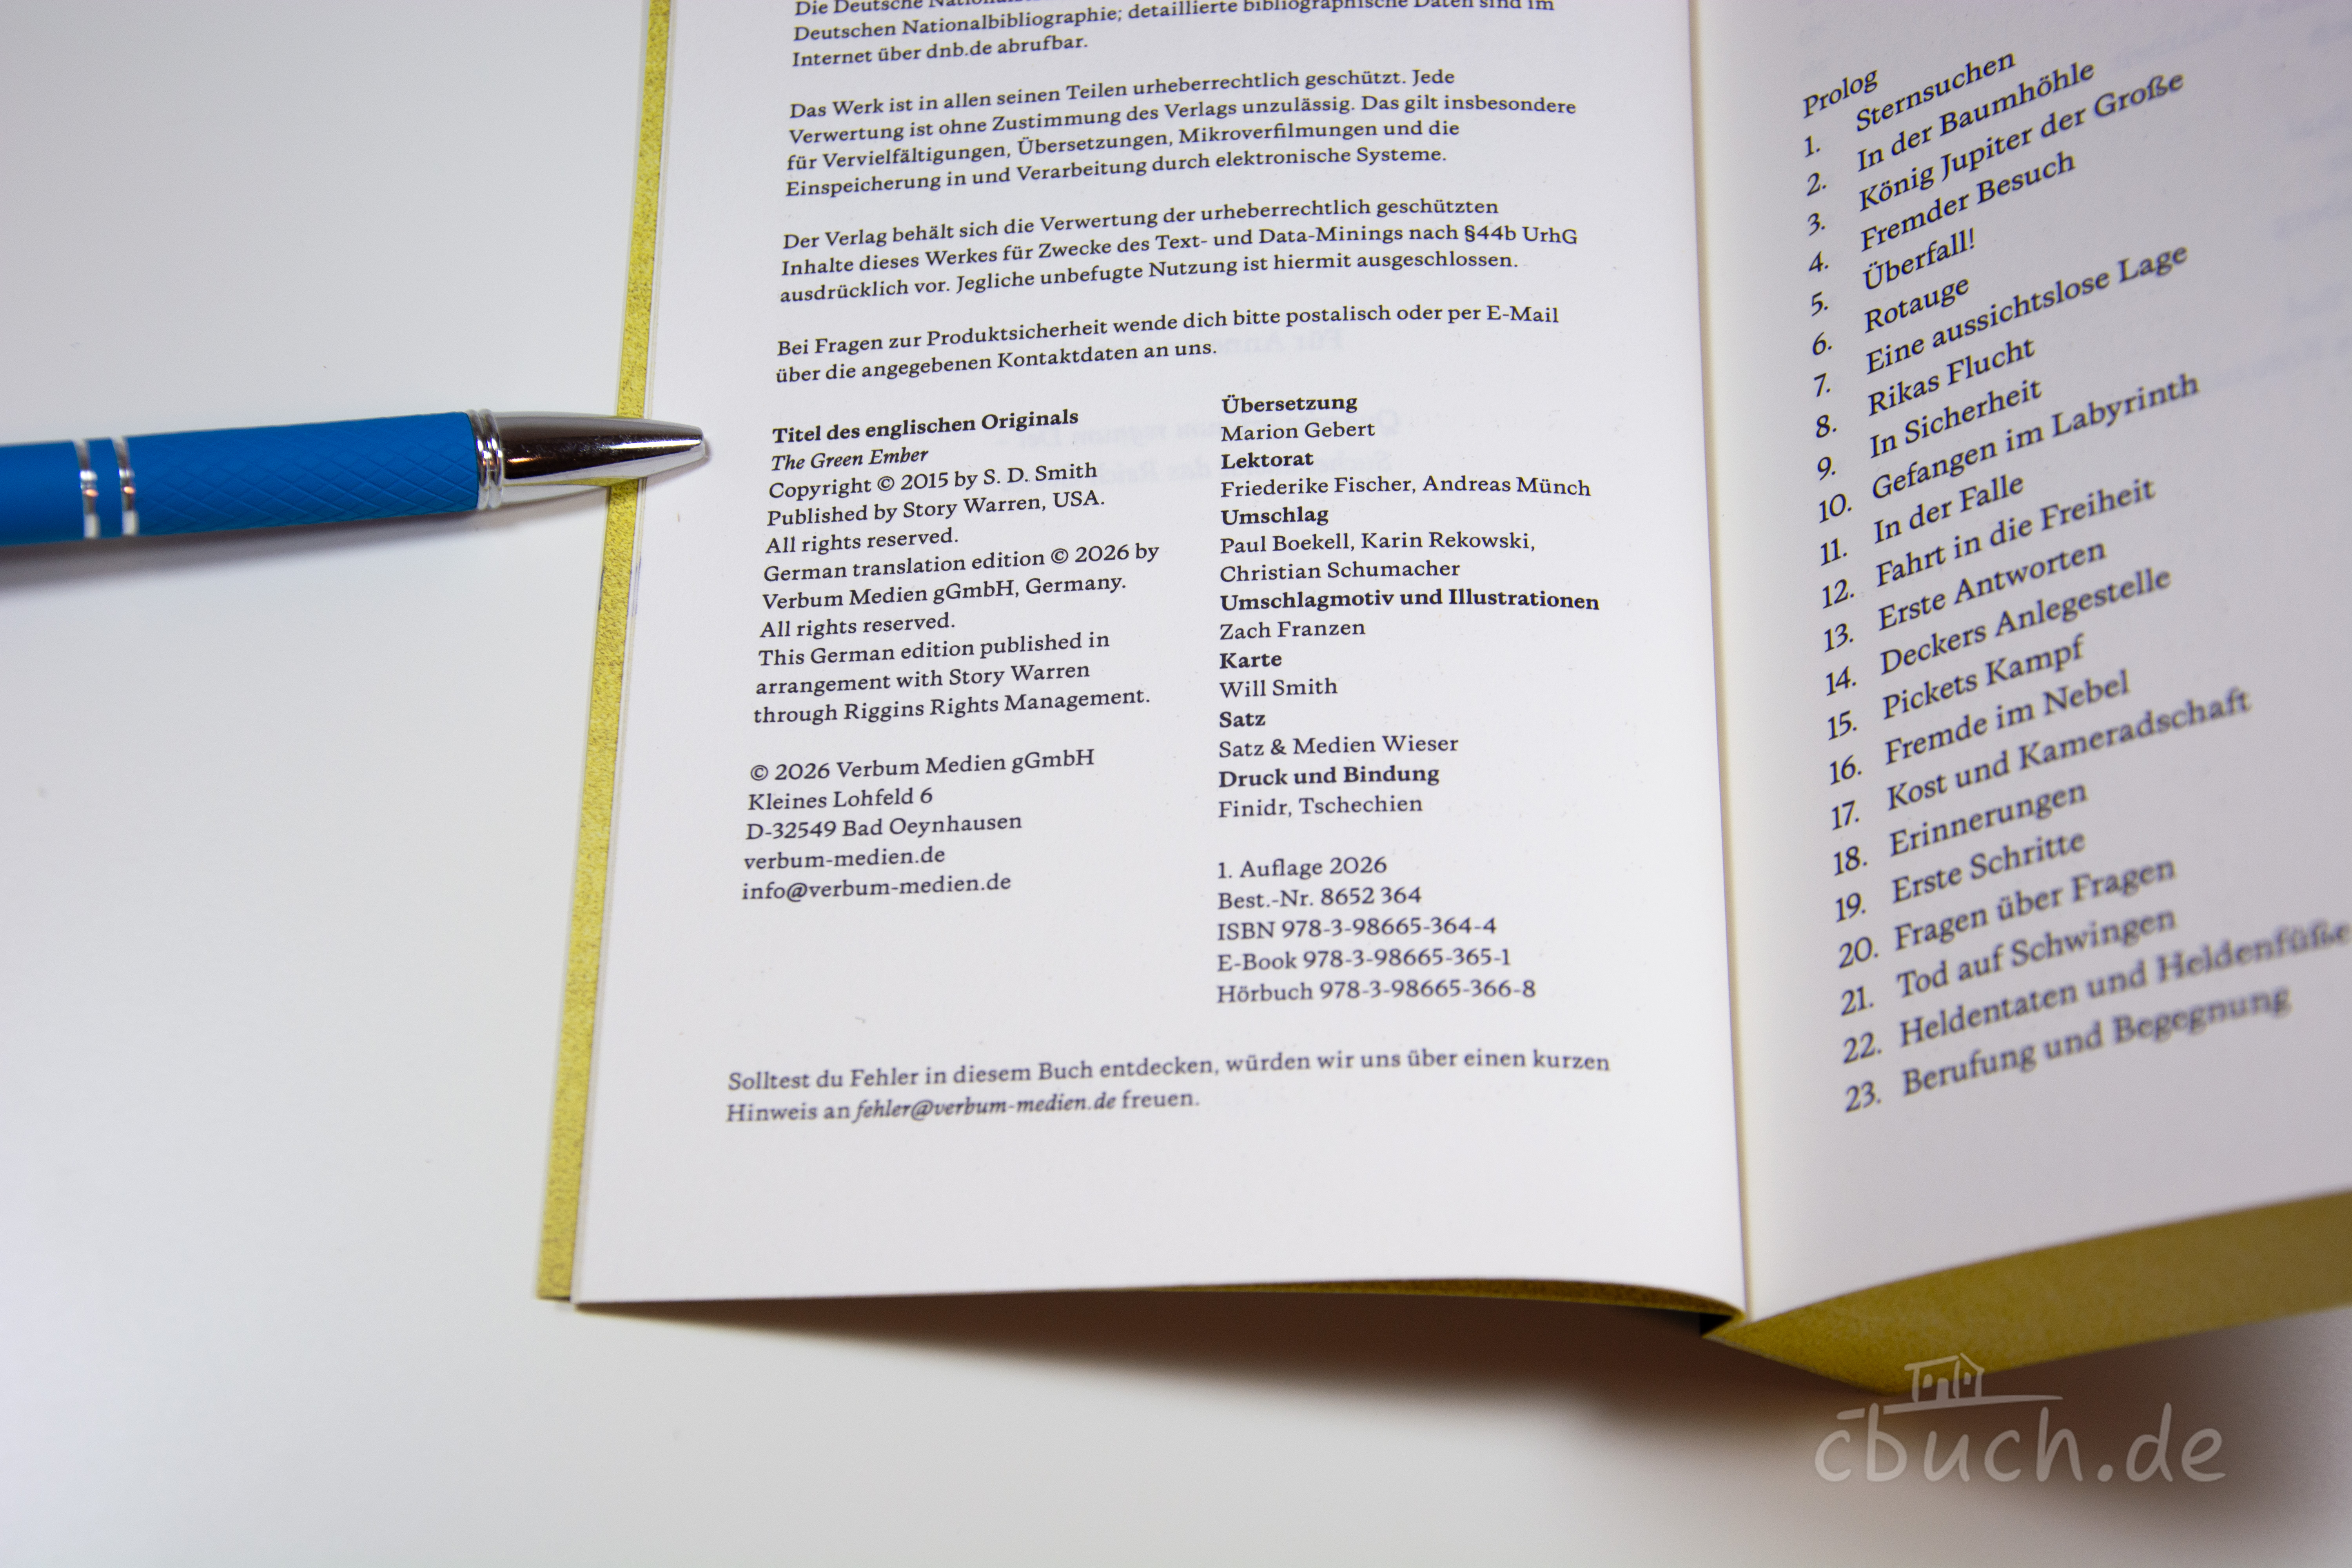 Die Deutsche
Deutschen Nationalbibliographie; detaillierte bibliographische Daten sind im
Internet über dnb.de abrufbar.
Das Werk ist in allen seinen Teilen urheberrechtlich geschützt. Jede
Verwertung ist ohne Zustimmung des Verlags unzulässig. Das gilt insbesondere
für Vervielfältigungen, Übersetzungen, Mikroverfilmungen und die
Einspeicherung in und Verarbeitung durch elektronische Systeme.
Der Verlag behält sich die Verwertung der urheberrechtlich geschützten
Inhalte dieses Werkes für Zwecke des Text- und Data-Minings nach §44b UrhG
ausdrücklich vor. Jegliche unbefugte Nutzung ist hiermit ausgeschlossen.
Bei Fragen zur Produktsicherheit wende dich bitte postalisch oder per E-Mail
über die angegebenen Kontaktdaten an uns.
Titel des englischen Originals
The Green Ember
Copyright © 2015 by S. D. Smith
Published by Story Warren, USA.
All rights reserved.
German translation edition © 2026 by
Verbum Medien gGmbH, Germany.
All rights reserved.
This German edition published in
arrangement with Story Warren
through Riggins Rights Management.
© 2026 Verbum Medien gGmbH
Kleines Lohfeld 6
D-32549 Bad Oeynhausen
verbum-medien.de
info@verbum-medien.de
Übersetzung
Marion Gebert
Lektorat
Friederike Fischer, Andreas Münch
Umschlag
Paul Boekell, Karin Rekowski,
Christian Schumacher
Umschlagmotiv und Illustrationen
Zach Franzen
Karte
Will Smith
Satz
Satz & Medien Wieser
Druck und Bindung
Finidr, Tschechien
1. Auflage 2026
Best.-Nr. 8652 364
ISBN 978-3-98665-364-4
E-Book 978-3-98665-365-1
Hörbuch 978-3-98665-366-8
Solltest du Fehler in diesem Buch entdecken, würden wir uns über einen kurzen
Hinweis an fehler@verbum-medien.de freuen.
Prolog
1. Sternsuchen
2. In der Baumhöhle
3. König Jupiter der Große
4. Fremder Besuch
5. Überfall!
6. Rotauge
7. Eine aussichtslose Lage
8. Rikas Flucht
9. In Sicherheit
10. Gefangen im Labyrinth
11. In der Falle
12. Fahrt in die Freiheit
13. Erste Antworten
14. Deckers Anlegestelle
15. Pickets Kampf
16. Fremde im Nebel
17. Kost und Kameradschaft
18. Erinnerungen
19. Erste Schritte
20. Fragen über Fragen
21. Tod auf Schwingen
22. Heldentaten und Heldenfüße
23. Berufung und Begegnung
cbuch.de